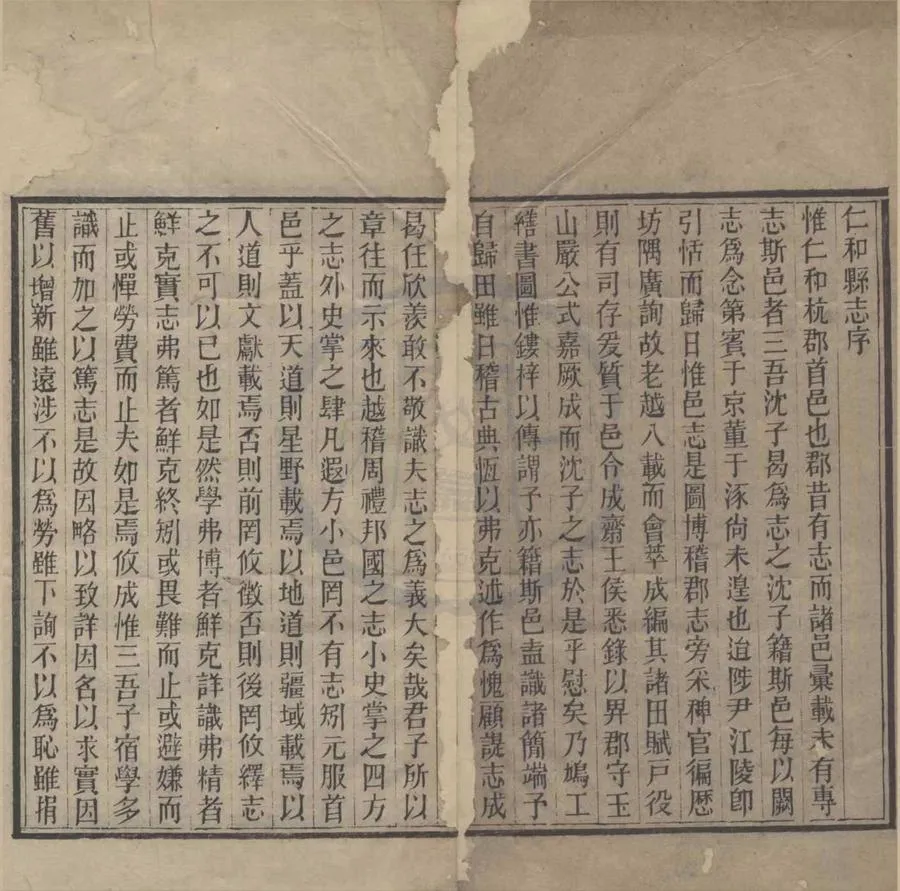 仁和縣志序
惟仁和杭郡首邑也郡昔有志而諸邑彙載未有專
志斯邑者三吾沈子曷為志之沈子籍斯邑每以闕
志為念第賓于京董于涿尚未遑也迨陟尹江陵卽
引恬而歸日惟邑志是圖博稽郡志旁采稗官徧歷
坊隅廣詢故老越八載而會萃成編其諸田賦戸役
則有司存爰質于邑令成齋王侯悉錄以畀郡守玉
山嚴公式嘉厥成而沈子之志於是乎慰矣乃鳩工
繕書圖惟鏤梓以傳謂予亦籍斯邑盍識諸簡端予
自歸田雖日稽古典恆以弗克述作為愧顧諟志成
曷任欣羨敢不敬識夫志之為義大矣哉君子所以
章往而示來也越稽周禮邦國之志小史掌之四方
之志外史掌之肆凡遐方小邑罔不有志矧元服首
邑乎蓋以天道則星野載焉以地道則疆域載焉以
人道則文獻載焉否則前罔攸徵否則後罔攸繹志
之不可以已也如是然學弗博者鮮克詳識弗精者
鮮克實志弗篤者鮮克終矧或畏難而止或避嫌而
止或憚勞費而止夫如是焉攸成惟三吾子宿學多
識而加之以篤志是故因略以致詳因名以求實因
舊以增新雖遠涉不以為勞雖下詢不以為恥雖捐